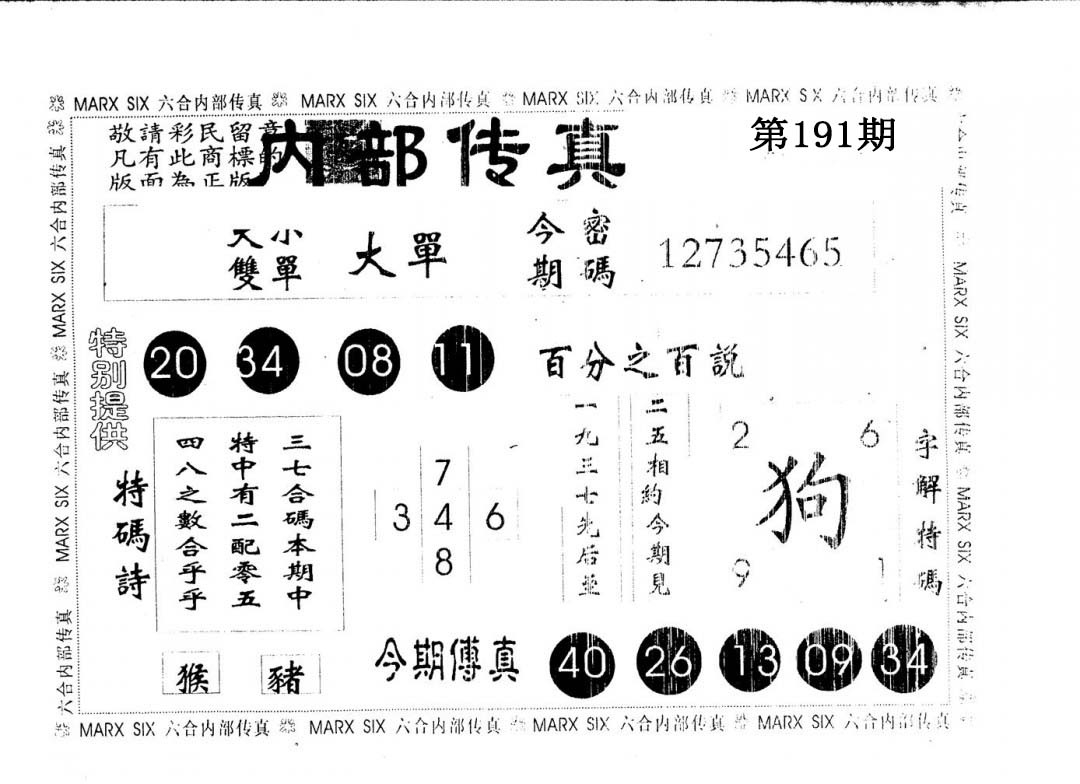 MARX SIX 六合内部传真 MARX SIX 六合内部传真 MARX SIX 六合内部传真 MARX SIX 六合内部传真
敬請彩民留意
凡有此商標的
版面為正版
内部传真
第191期
大小
雙單
大單
今期
密碼
12735465
特别提供
20 34 08 11
百分之百説
特碼詩
三七合碼本期中
特中有二配零五
四八之數合乎乎
7
3 4 6
8
二五相約今期見
一九三七先后並
2 6
狗
9 1
字解特碼
猴 豬
今期傳真
40 26 13 09 34
MARX SIX 六合内部传真 MARX SIX 六合内部传真 MARX SIX 六合内部传真 MARX SIX 六合内部传真
六合内部传真 MARX SIX 六合内部传真 MARX SIX 六合内部传真
MARX SIX 六合内部传真 MARX SIX 六合内部传真